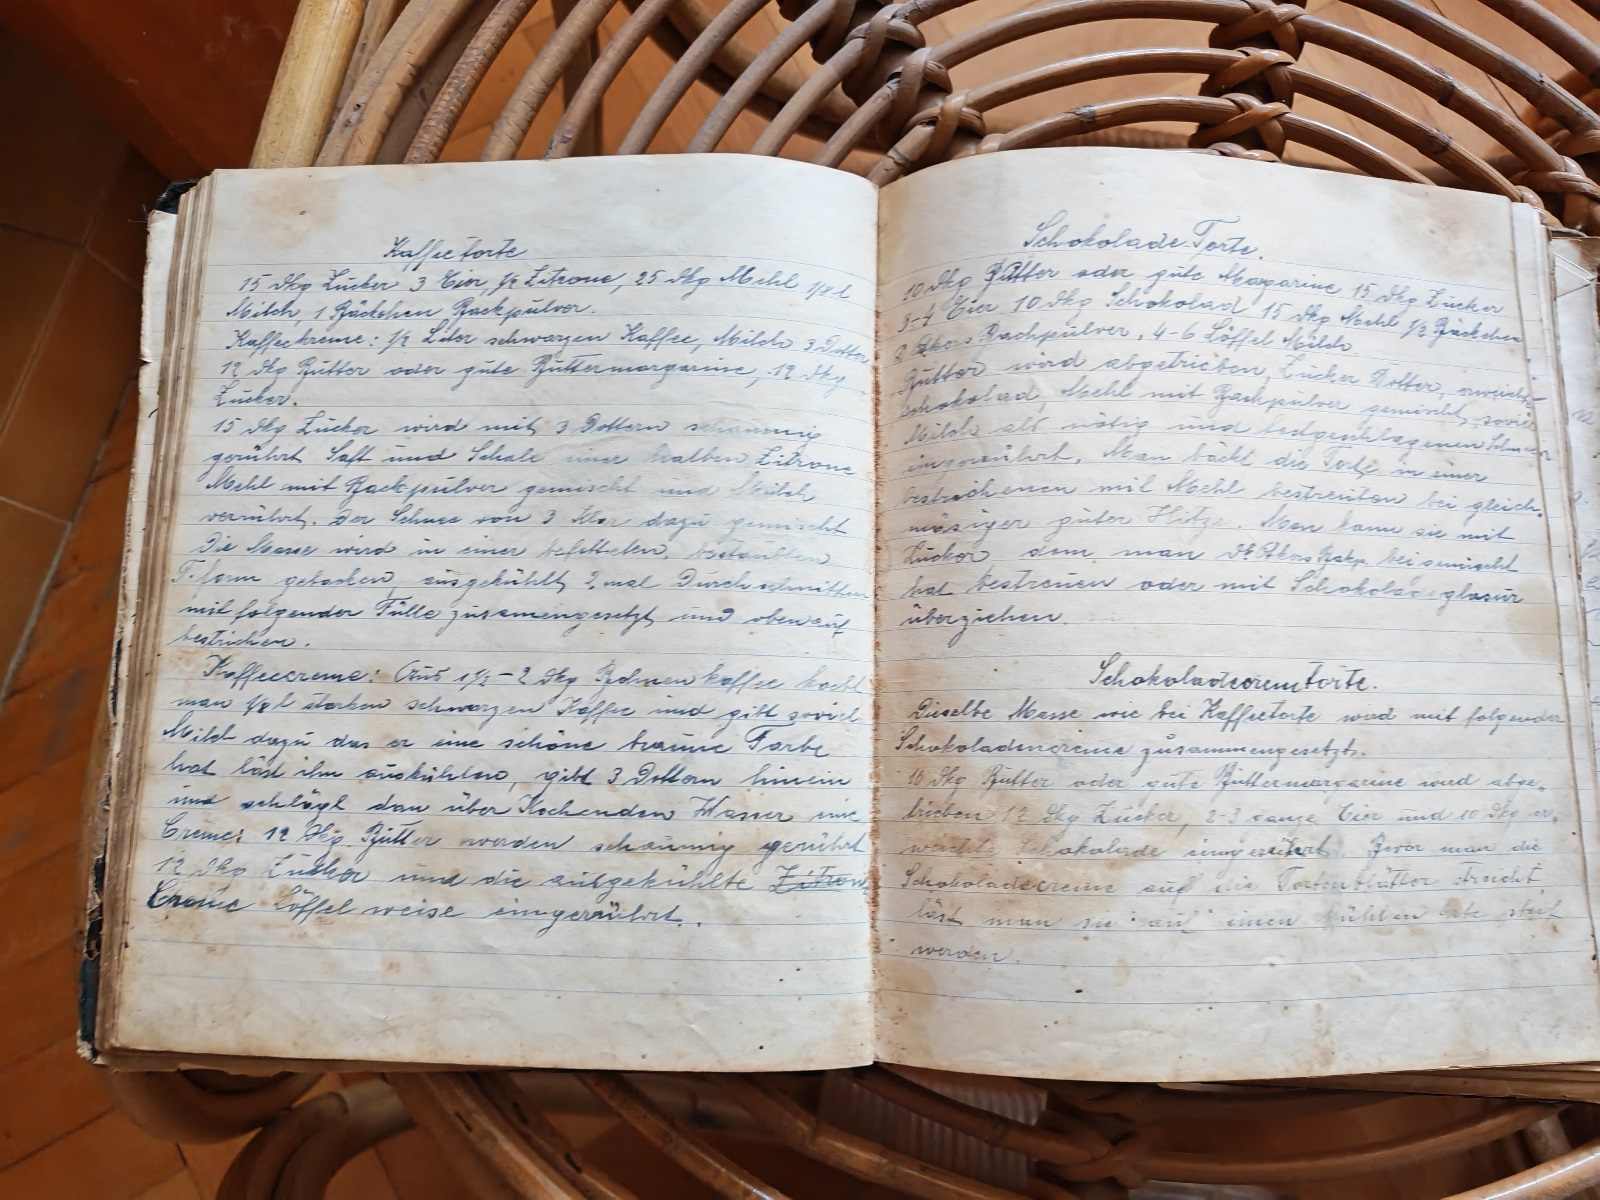 Kaffeetorte
15 dkg Zucker 3 Eier, 1/2 Zitrone, 25 dkg Mehl 1/8 l
Milch, 1 Päckchen Backpulver.
Kaffeekreme: 1/2 Liter schwarzen Kaffee, Milch 3 Dotter
12 dkg Butter oder gute Buttermargarine, 12 dkg
Zucker.
15 dkg Zucker wird mit 3 Dottern schaumig
gerührt Saft und Schale einer halben Zitrone
Mehl mit Backpulver gemischt und Milch
verrührt. Der Schnee von 3 Klar dazu gemischt
Die Masse wird in einer befetteten, bestaubten
T.form gebacken, ausgekühlt 2 mal Durchschnitten
mit folgender Fülle zusamengesetzt und obenauf
bestrichen.
Kaffeecreme: Aus 1 1/2 - 2 dkg Bohnenkaffee kocht
man 1/8 l starken schwarzen Kaffee und gibt soviel
Milch dazu das er eine schöne braune Farbe
hat läst ihn auskühlen, gibt 3 Dottern hinein
und schlägt dan über Kochenden Wasser eine
Creme: 12 dkg Butter werden schaumig gerührt
12 dkg Zucker und die ausgekühlte Zitron
Creme Löffelweise eingerührt.
Schokolade-Torte.
10 dkg Butter oder gute Margarine 15 dkg Zucker
3-4 Eier 10 dkg Schokolad 15 dkg Mehl 1/2 Päckchen
Backpulver, 4-6 Löffel Milch
Butter wird abgetrieben, Zucker Dotter, erweicht-
schokolad, Mehl mit Backpulver gemischt, soviel
Milch als nötig und festgeschlagenen Schnee
eingerührt. Man bäckt die Torte in einer
bestrichenen mit Mehl bestreuten bei gleich-
mäsiger guter Hitze. Man kann sie mit
Zucker dem man bei gemischt
hat bestreuen oder mit Schokoladeglasur
überziehen.
Schokoladecremtorte.
Dieselbe Masse wie bei Kaffeetorte wird mit folgender
Schokoladencreme zusammengesetzt.
16 dkg Butter oder gute Buttermargarine wird abge-
trieben 12 dkg Zucker, 2-3 ganze Eier und 10 dkg er-
weichte Schokolade eingerührt. Bevor man die
Schokoladecreme auf die Tortenblätter streicht
läst man sie auf einen kühlen Orte steif
werden.